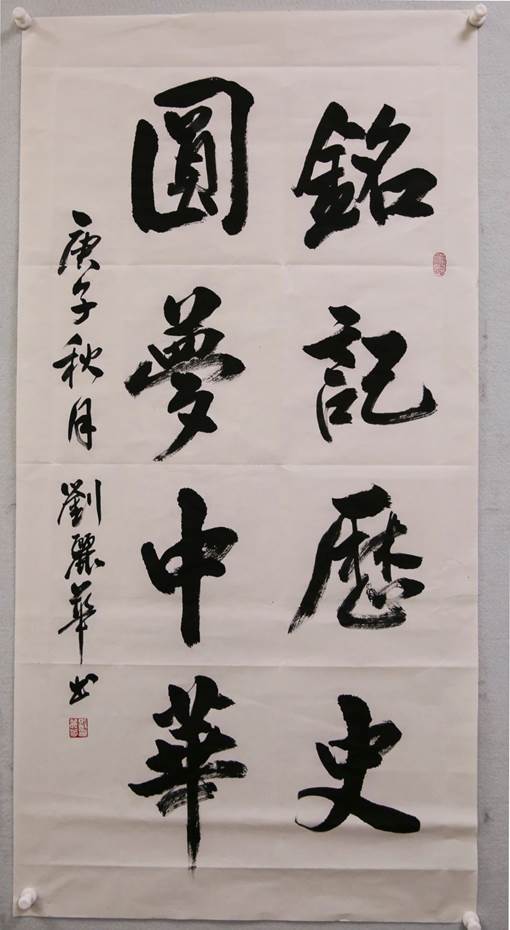 銘記歷史
圓夢中華
庚子秋月 劉麗華書